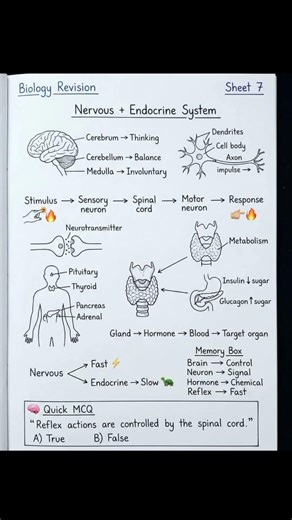 Biology Revision
Sheet 7
Nervous + Endocrine System
Cerebrum → Thinking
Cerebellum → Balance
Medulla → Involuntary
Dendrites
Cell body
Axon
impulse →
Stimulus → Sensory neuron → Spinal cord → Motor neuron → Response
Neurotransmitter
Metabolism
Pituitary
Thyroid
Pancreas
Adrenal
Insulin ↓ sugar
Glucagon ↑ sugar
Gland → Hormone → Blood → Target organ
Nervous
Fast ⚡
Endocrine → Slow 🐢
Memory Box
Brain → Control
Neuron → Signal
Hormone → Chemical
Reflex → Fast
🧠 Quick MCQ
"Reflex actions are controlled by the spinal cord."
A) True B) False